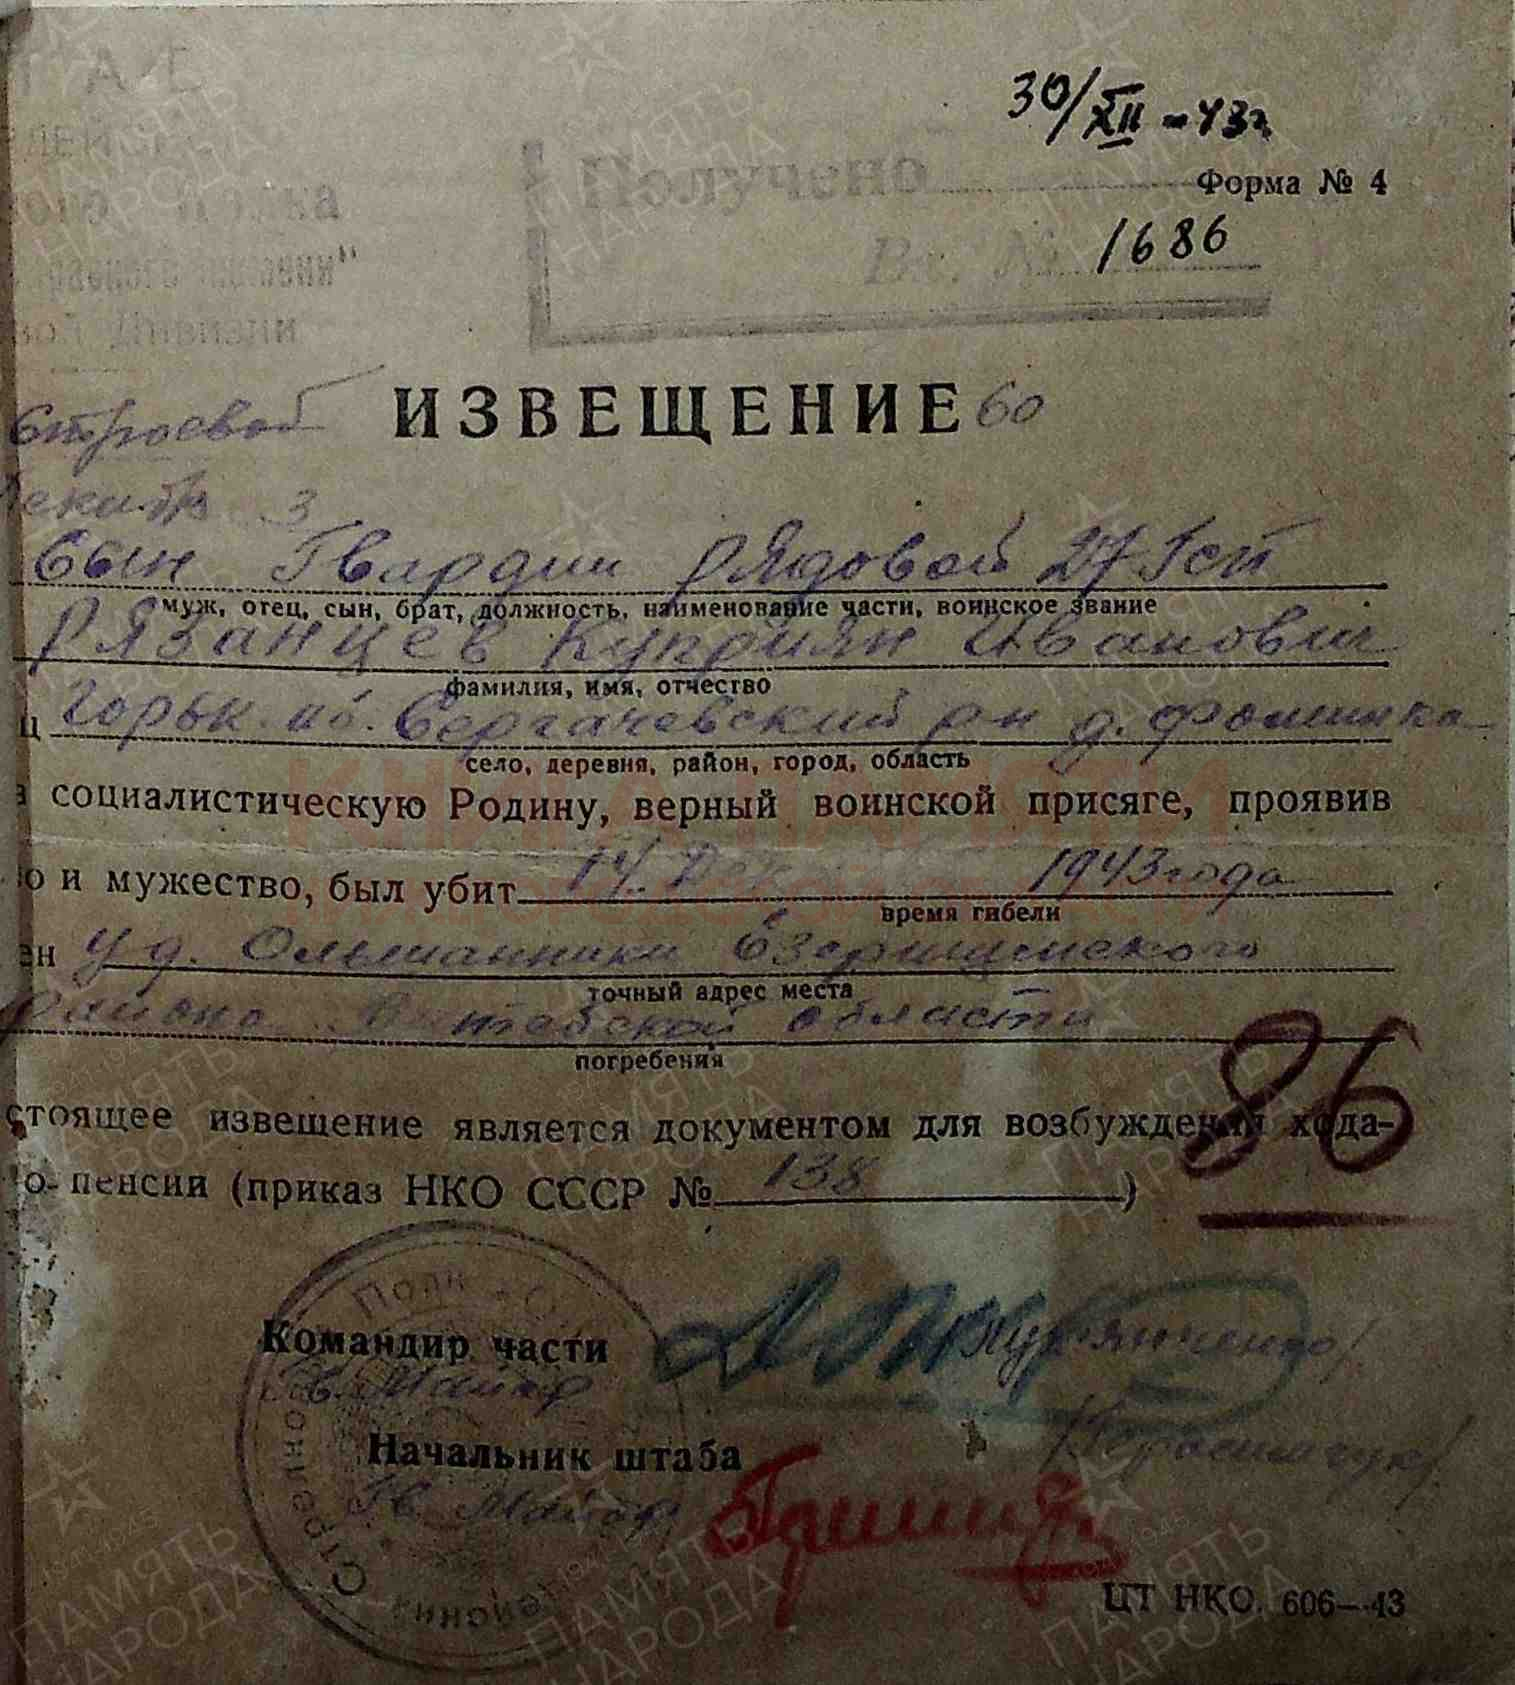 30/XII-43г
Получено
Форма № 4
Вх. № 1686
ИЗВЕЩЕНИЕ 60
строевой
3
Сын Гвардии рядовой 27 Гсп
муж, отец, сын, брат, должность, наименование части, воинское звание
Рязанцев Куприян Иванович
фамилия, имя, отчество
ц Горьк. об. Сергачевский рн д. Фоминка
село, деревня, район, город, область
социалистическую Родину, верный воинской присяге, проявив
о и мужество, был убит 14. Дек 1943 года
время гибели
ен у д. Ольманники Езерищенского
точный адрес места
района Витебской области
погребения
86
стоящее извещение является документом для возбуждения хода-
о пенсии (приказ НКО СССР № 138)
Командир части
Гв. Майор
Начальник штаба /Герасимчук/
Гв. Майор
ЦТ НКО. 606—43
ПАМЯТЬ НАРОДА